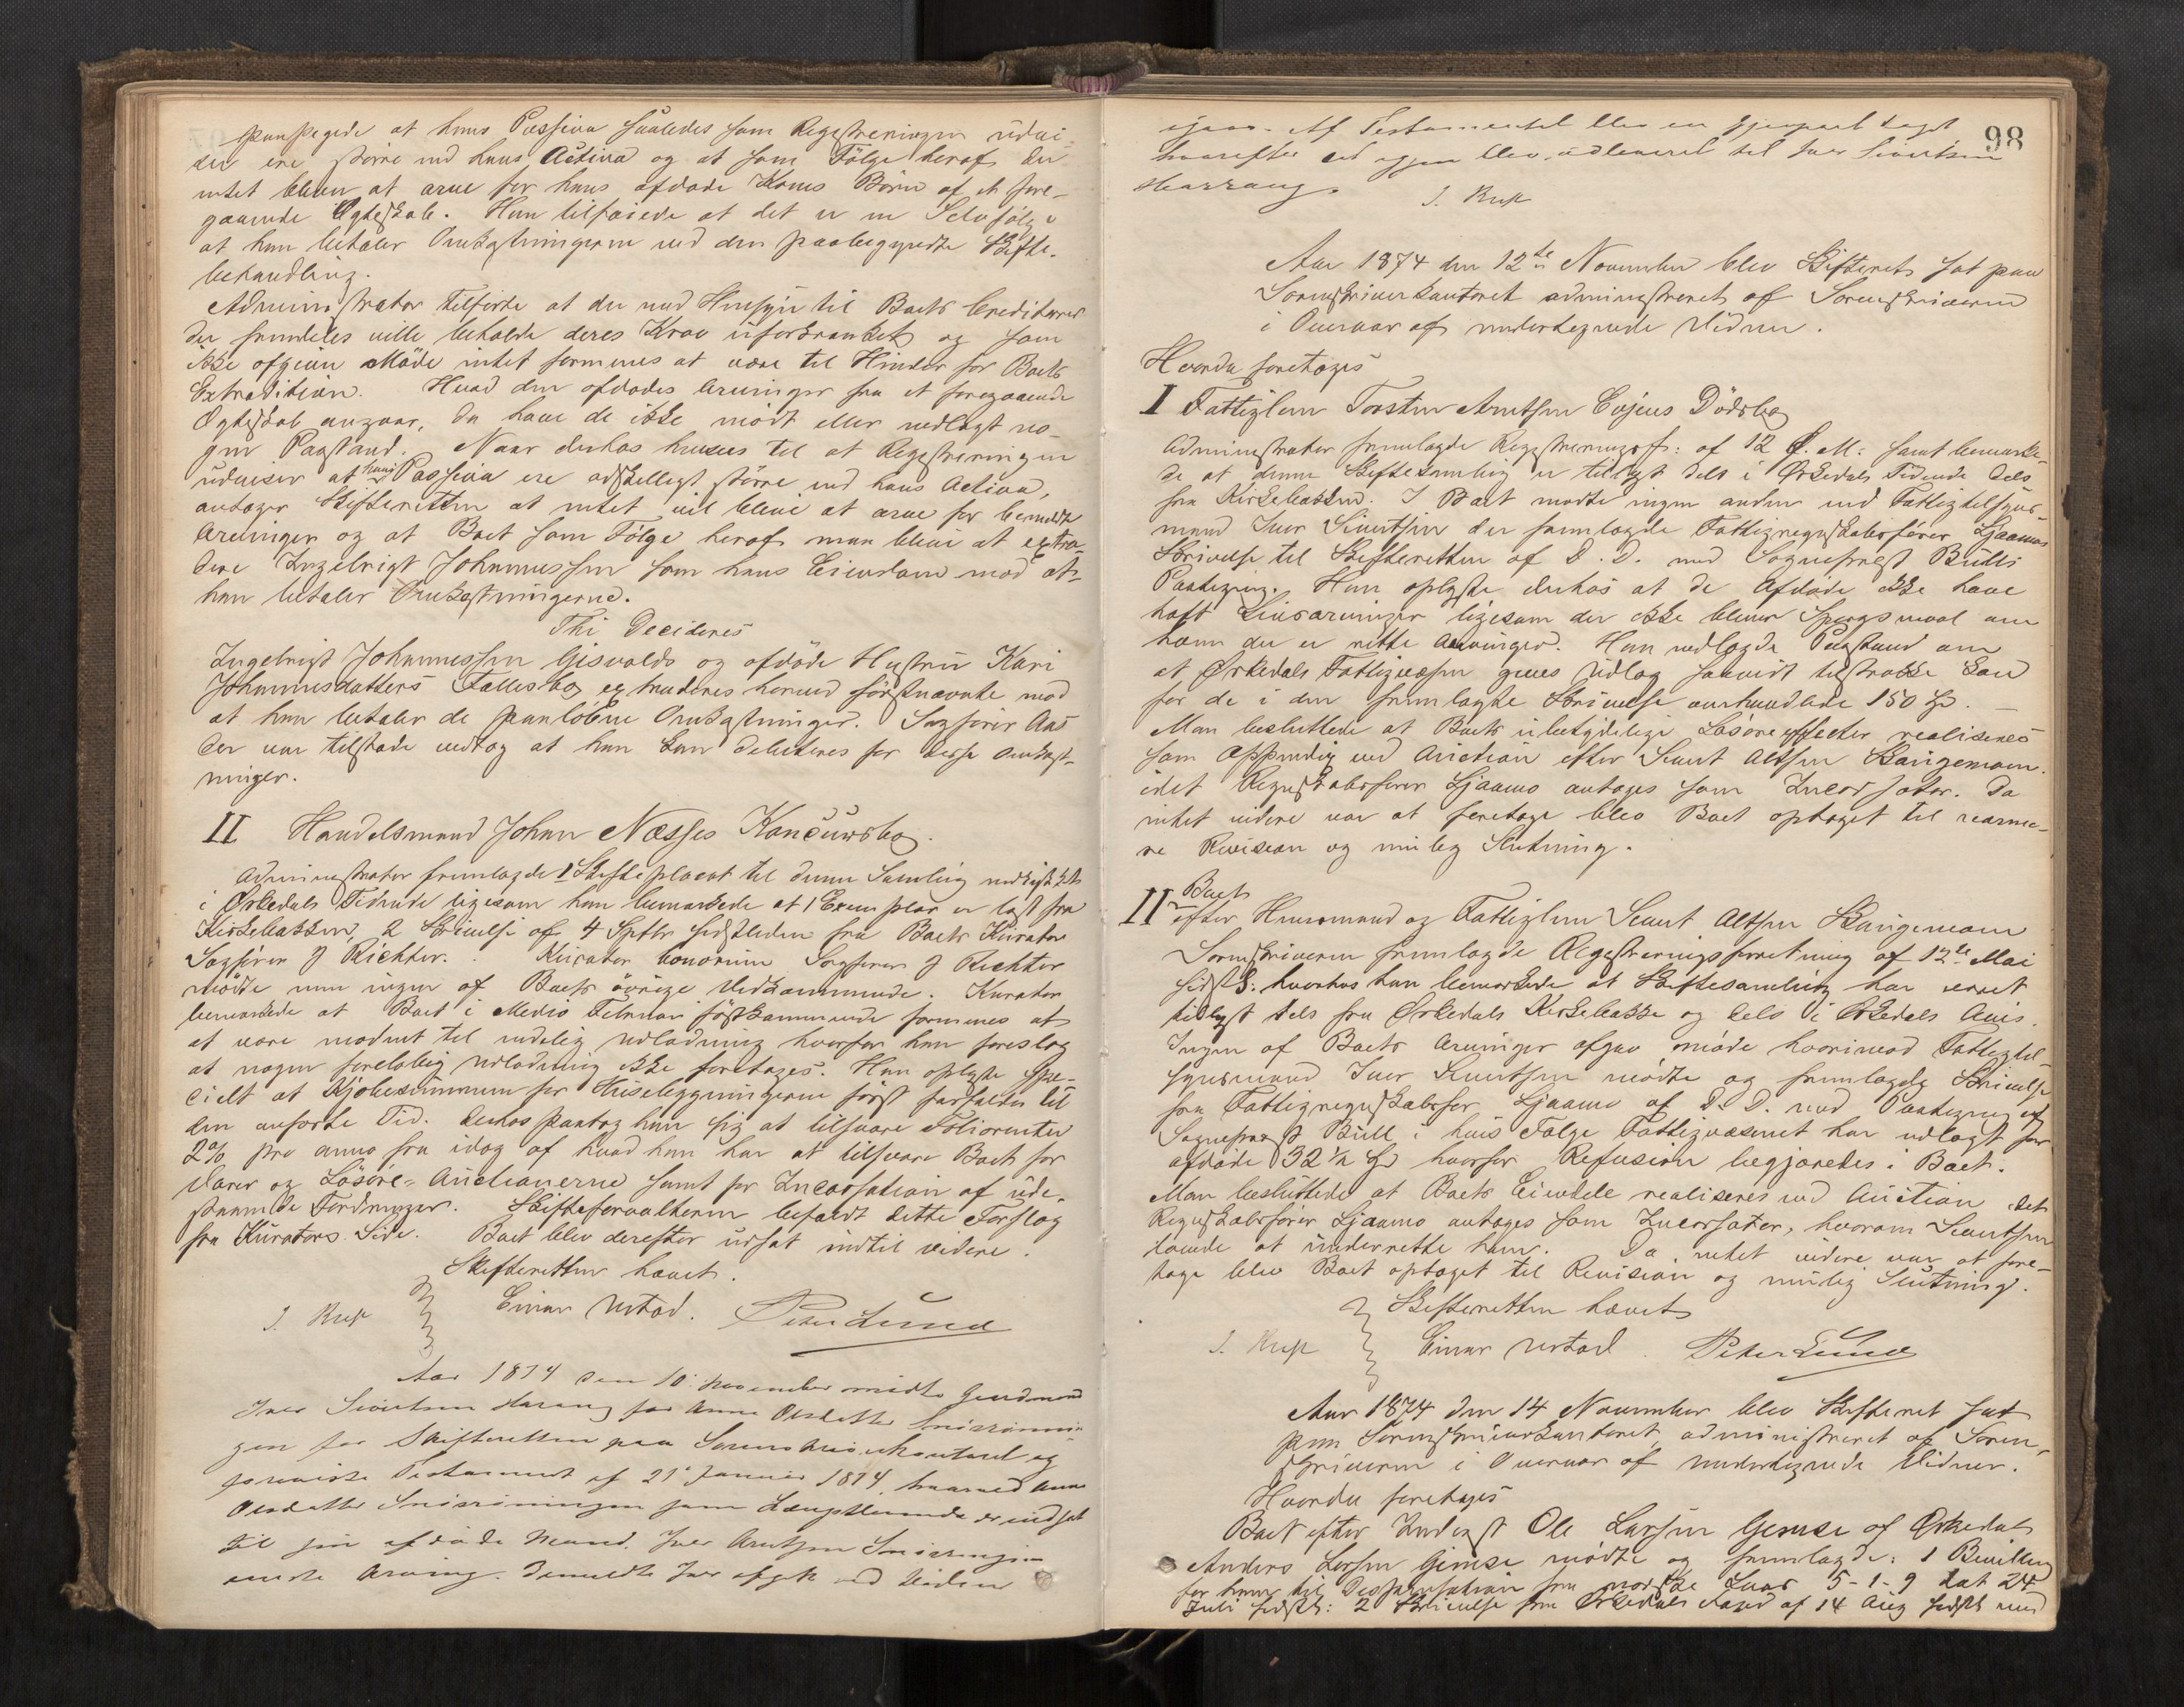 paapegede at hans Passiva saaledes som Registreringen udvi-
ser ere større end hans Activa og at som Følge heraf der
intet bliver at arve for hans afdøde Kones Børn af et fore-
gaaende Ægteskab. Han tilføiede at det er en Selvfølge
at han betaler Omkostningerne ved den paabegyndte Skifte-
behandling.
Administrator tilførte at der med Hensyn til Boets Creditorer
der fremdeles ville beholde deres Krav uforkrænket og som
ikke afgive Møde intet formenes at være til Hinder for Boets
Extradition. Hvad den afdødes Arvinger fra et foregaaende
Ægteskab angaar, da have de ikke mødt eller nedlagt no-
gen Paastand. Naar derhos hensees til at Registreringen
udviser at hans Passiva ere adskilligt større end hans Activa,
antager Skifteretten at intet vil blive at arve for bemeldte
Arvinger og at Boet som Følge heraf maa blive at extra-
dere Ingebrigt Johannessen som hans Eiendom mod at
han betaler Omkostningerne.
Thi Decideres
Ingebrigt Johannessen Gisvolds og afdøde Hustru Kari
Johannesdatters Fællesbo extraderes herved førstnævnte mod
at han betaler de paaløbne Omkostninger. Sagfører Aas
der var tilstede vedtog at han kan debiteres for disse Omkost-
ninger.
II Handelsmand Johan Næsses Konkursbo.
Administrator fremlagde 1 Skifteplacat til denne Samling
i Ørkedals Tidende ligesom han bemærkede at 1 Exemplar er læst fra
Kirkebakken, 2 Skrivelse af 4 Septbr sidstleden fra Boets Kurator
Sagfører J Richter. Kurator bonorum Sagfører J Richter
mødte men ingen af Boets øvrige Vedkommende. Kurator
bemærkede at Boet i Medio Februar førstkommende formenes at
at være modent til endelig Udlodning hvorfor han foreslog
at nogen foreløbig Udlodning ikke foretages. Han oplyste spe-
cielt at Kjøbesummen for Husebygningerne først forfalder til
den anførte Tid. Derhos paatog han sig at tilsvare Foliorenter
2% pro anno fra idag af hvad han har at tilsvare Boet for
Varer og Løsøre-Auctionerne samt for Incassation af ude-
staaende Fordringer. Skifteforvalteren bifaldt dette Forslag
fra Kurators Side. Boet blev derefter udsat indtil videre.
Skifteretten hævet.
J. Rup Einar Ustad. Peter Lund
Aar 1874 den 10. November mødte Gaardmand
Iver Sivertsen Harang for Anne Olsdatter
gen for Skifteretten paa Sorenskriverkontoret og
foreviste Testament af 21 Januar 1874, hvorved Anne
Olsdatter som Længstlevende er indsat
til sin afdøde Mand Iver Arntsen
eneste Arving. Bemeldte Iver afgik ved Døden
98
igaar. Af Testamentet blev en Gjenpart taget
hvorefter det igjen blev udleveret til Iver Sivertsen
Harrang.
J. Rup
Aar 1874 den 12te November blev Skifteret sat paa
Sorenskriverkontoret administreret af Sorenskriveren
i Overvær af undertegnede Vidner.
Hvorda foretoges
I Fattiglem Torsten Arntsen Evjens Dødsbo
Administrator fremlagde Registreringsf: af 12 d. M: samt bemærke-
de at denne Skiftesamling er tillyst dels i Ørkedals Tidende dels
fra Kirkebakken. I Boet mødte ingen anden end Fattigtilsyns-
mand Iver Sivertsen der fremlagde Fattigregnskabsfører Ljaamos
Skrivelse til Skifteretten af D. D. med Sogneprest Bulls
Paategning. Han oplyste derhos at de Afdøde ikke have
havt Livsarvinger ligesom der ikke bliver Spørgsmaal om
hvem der er rette Arvinger. Han nedlagde Paastand om
at Ørkedals Fattigvæsen gives Udlæg saavidt tilstrække kan
for de i den fremlagte Skrivelse omhandlede 150 Spd.
Man besluttede at Boets ubetydelige Løsøreeffecter realiseres
som Appendix ved Auction efter Sivert Altsen Skaugemoen
idet Regnskabsfører Ljaamo antages som Incassator. Da
intet videre var at foretage blev Boet optaget til nærme-
re Revision og mulig Slutning.
II Boet efter Huusmand og Fattiglem Sivert Altsen Skaugemoen
Sorenskriveren fremlagde Registreringsforretning af 12te Mai
sidstl: hvorhos han bemærkede at Skiftesamling har været
tillyst dels fra Ørkedals Kirkebakke og dels i Ørkedals Avis.
Ingen af Boets Arvinger afgav møde hvorimod Fattigtil-
synsmand Iver Sivertsen mødte og fremlagde Skrivelse
fra Fattigregnskabsfør Ljaamo af D. D. med Paategning af
Sogneprest Bull i hvis Følge Fattigvæsenet har udlagt for
afdøde 32 1/2 Spd hvorfor Refusion begjæredes i Boet.
Man besluttede at Boets Eiendele realiseres ved Auction idet
Regnskabsfører Ljaamo antages som Incassator, hvorom Sivertsen
lovede at underrette ham. Da intet videre var at fore-
tage blev Boet optaget til Revision og mulig Slutning.
Skifteretten hævet
J. Rup Einar Ustad. Peter Lund
Aar 1874 den 14 November blev Skifteret sat
paa Sorenskriverkontoret, administreret af Soren-
skriveren i Overvær af undertegnede Vidner.
Hvorda foretoges
Boet efter Inderst Ole Larsen Gimse af Ørkedal
Anders Larsen Gimse mødte og fremlagde: 1 Bevilling
for ham til Dispensation fra norske Lovs 5-1-9 dat 24
Juli sidstl: 2 Skrivelse fra Ørkedals Foged af 14 Aug sidstl med